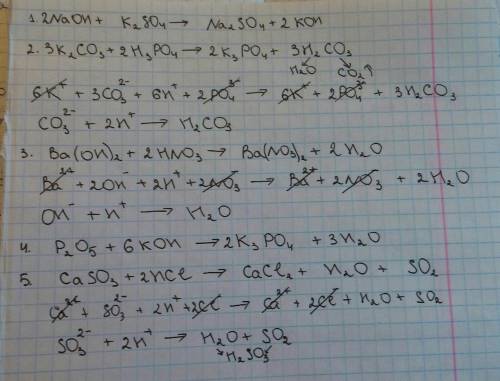 1. 2NaOH + K₂SO₄ → Na₂SO₄ + 2KOH
2. 3K₂CO₃ + 2H₃PO₄ → 2K₃PO₄ + 3H₂CO₃
H₂O CO₂↑
6K⁺ + 3CO₃²⁻ + 6H⁺ + 2PO₄³⁻ → 6K⁺ + 2PO₄³⁻ + 3H₂CO₃
CO₃²⁻ + 2H⁺ → H₂CO₃
3. Ba(OH)₂ + 2HNO₃ → Ba(NO₃)₂ + 2H₂O
Ba²⁺ + 2OH⁻ + 2H⁺ + 2NO₃⁻ → Ba²⁺ + 2NO₃⁻ + 2H₂O
OH⁻ + H⁺ → H₂O
4. P₂O₅ + 6KOH → 2K₃PO₄ + 3H₂O
5. CaSO₃ + 2HCl → CaCl₂ + H₂O + SO₂
Ca²⁺ + SO₃²⁻ + 2H⁺ + 2Cl⁻ → Ca²⁺ + 2Cl⁻ + H₂O + SO₂
SO₃²⁻ + 2H⁺ → H₂O + SO₂
H₂SO₃